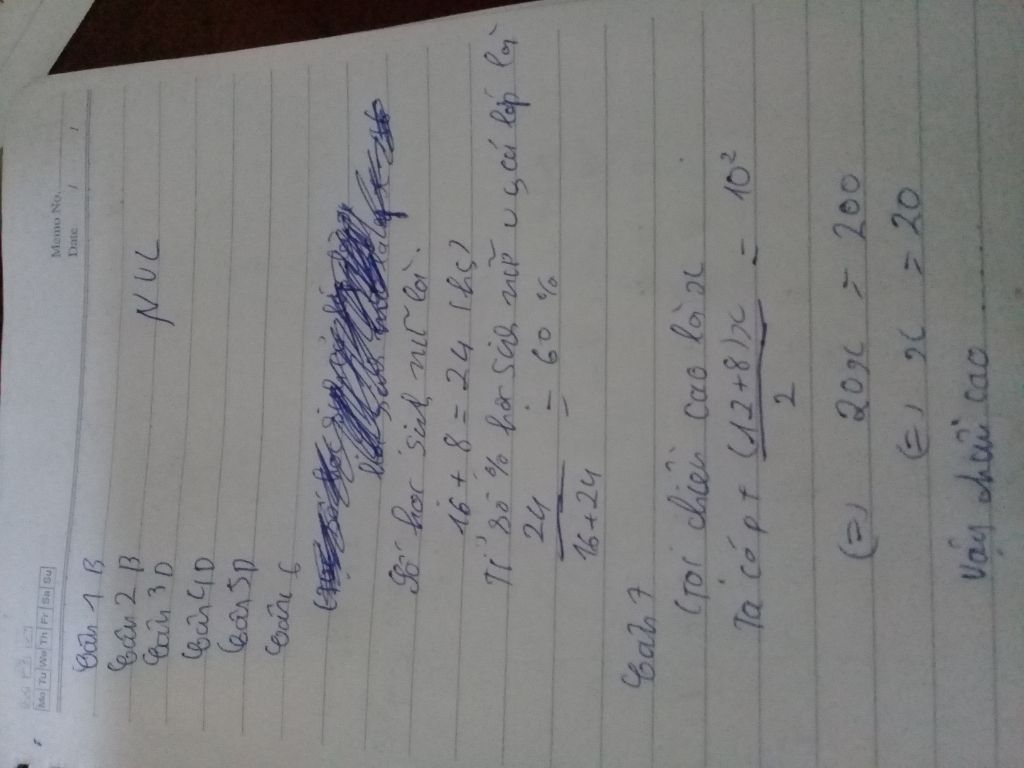 Mo Tu We Th Fr Sa Su
Memo No.
Date / /
Câu 1 B
Câu 2 B
Câu 3 D
Câu 4 D
Câu 5 D
Câu 6
Số học sinh nữ là
16 + 8 = 24 (hs)
Tỉ số % học sinh nữ và cả lớp là
24
16+24
= 60 %
Câu 7
Gọi chiều cao là x
Ta có pt (12+8)x = 10²
2
(=) 20x = 200
(=) x = 20
Vậy chiều cao